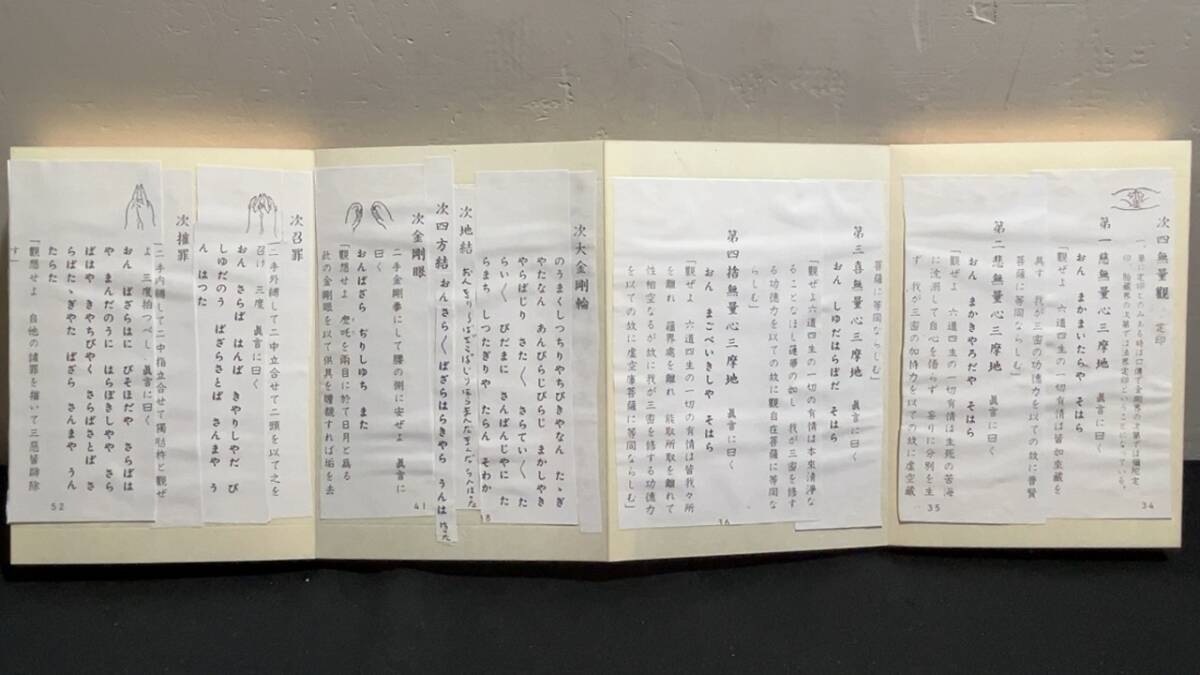 次四無量觀 定印
一、單に定印とのみある時は口傳で金剛界の次第では彌陀定
印、胎藏界の次第では法界定印ということになっている。
第一慈無量心三摩地 眞言に曰く
おん まかまいたらや そはら
「觀ぜよ 六道四生の一切の有情は皆如來藏を
具す 我が三密の功德力を以ての故に普賢
菩薩に等同ならしむ」
34
第二悲無量心三摩地 眞言に曰く
おん まかきやろだや そはら
「觀ぜよ 六道四生の一切有情は生死の苦海
に沈溺して自心を悟らず 妄りに分別を生
ず 我が三密の加持力を以ての故に虛空藏
35
菩薩に等同ならしむ」
第三喜無量心三摩地 眞言に曰く
おん しゆだはらぼだ そはら
「觀ぜよ六道四生の一切の有情は本來清淨な
ることなほし蓮華の如し 我が三密を修す
る功德力を以ての故に觀自在菩薩に等同な
らしむ」
第四捨無量心三摩地 眞言に曰く
おん まごべいきしや そはら
「觀ぜよ 六道四生の一切の有情は皆我々所
を離れ 蘊界處を離れ 能取所取を離れて
性相空なるが故に我が三密を修する功德力
を以ての故に虛空庫菩薩に等同ならしむ」
36
次大金剛輪
のうまくしつちりやちびきやなん たゝぎ
やたなん あんびらじびらじ まかしやき
やらばじり さた〱 さらてい〱 た
らい〱 びだまに さんばんじやに た
らまち しつたぎりや たらん そわか
次地結
次四方結 おんさら〱 ばざらはらきやら うんはつた
次金剛眼
二手金剛拳にして腰の側に安ぜよ 眞言に
曰く
おんばざら ぢりしゆち また
「觀想せよ 麽吒を兩目に於て日月と爲る
此の金剛眼を以て供具を瞻覩すれば垢を去
41
次召罪
二手外縛して二中立合せて二頭を以て之を
召け 三度 眞言に曰く
おん さらば はんば きやりしやだ び
しゆだのう ばざらさとば さんまや う
ん はつた
次摧罪
二手内縛して二中指立合せて獨鈷杵と觀ぜ
よ 三度拍つべし、眞言に曰く
おん ばざらはに びそほだや さらばは
や まんだのうに はらぼきしやや さら
ばはや きやちびやく さらばさとば さ
らばたゝぎやた ばざら さんまや うん
たらた
「觀想せよ 自他の諸罪を摧いて三惡皆除
す」
52